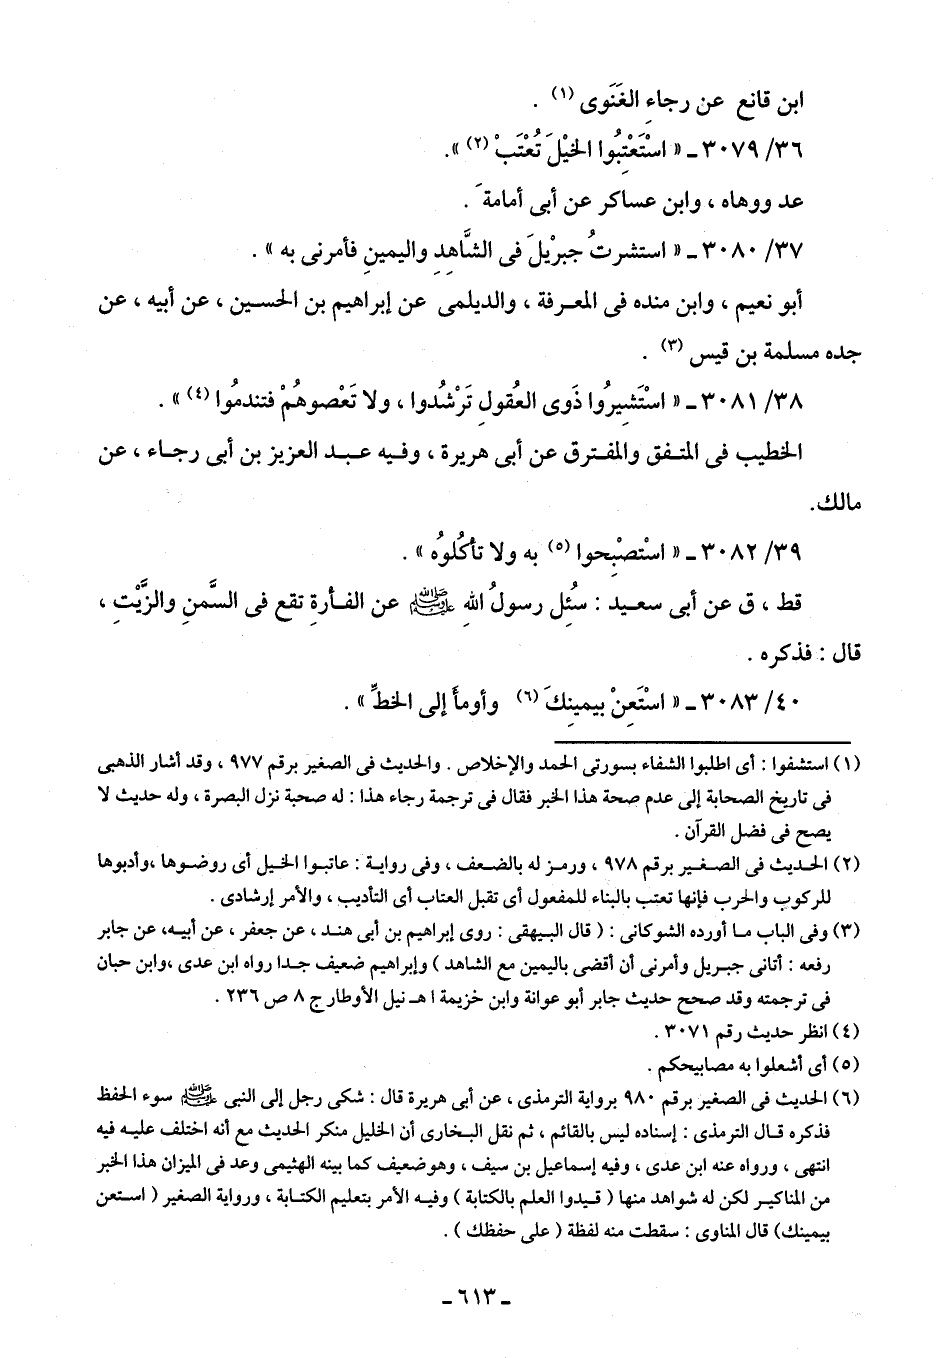 ابن قانع عن رجاءِ الغَنَوى (١) .
٣٦/ ٣٠٧٩ ـ « اسْتَعْتِبُوا الخيْلَ تُعْتَبْ (٢) ».
عد ووهاه ، وابن عساكر عن أبى أمامة َ .
٣٧/ ٣٠٨٠ ـ « استشرتُ جبْريْلَ فى الشَّاهِدِ واليمينِ فأمرنى به » .
أبو نعيم ، وابن منده فى المعرفة ، والديلمى عن إبراهيم بن الحسين ، عن أبيه ، عن
جده مسلمة بن قيس (٣) .
٣٨/ ٣٠٨١ ـ « اسْتَشيِرُوا ذَوى العُقولِ تَرْشُدوا ، ولا تَعْصوهُمْ فتندمُوا (٤) » .
الخطيب فى المتفق والمفترق عن أبى هريرة ، وفيه عبد العزيز بن أبى رجاء ، عن
مالك.
٣٩/ ٣٠٨٢ ـ « اسْتصْبِحوا (٥) به ولا تأكُلوُه » .
قط ، ق عن أبى سعيد : سُئِل رسولُ اللهِ ﷺ عن الفأرةِ تقع فى السَّمنِ والزَّيْتِ ،
قال : فذكره .
٤٠/ ٣٠٨٣ ـ « اسْتَعِنْ بيمينِكَ (٦) وأومأَ إلى الخطِّ » .
(١) استشفوا : أى اطلبوا الشفاء بسورتى الحمد والإخلاص . والحديث فى الصغير برقم ٩٧٧ ، وقد أشار الذهبى
فى تاريخ الصحابة إلى عدم صحة هذا الخبر فقال فى ترجمة رجاء هذا : له صحبة نزل البصرة ، وله حديث لا
يصح فى فضل القرآن .
(٢) الحديث فى الصغير برقم ٩٧٨ ، ورمز له بالضعف ، وفى رواية : عاتبوا الخيل أى روضوها ،وأدبوها
للركوب والحرب فإنها تعتب بالبناء للمفعول أى تقبل العتاب أى التأديب ، والأمر إرشادى .
(٣) وفى الباب ما أورده الشوكانى : ( قال البيهقى : روى إبراهيم بن أبى هند ، عن جعفر ، عن أبيه، عن جابر
رفعه : أتانى جبريل وأمرنى أن أقضى باليمين مع الشاهد ) وإبراهيم ضعيف جدا رواه ابن عدى ،وابن حبان
فى ترجمته وقد صحح حديث جابر أبو عوانة وابن خزيمة ا هـ نيل الأوطار ج ٨ ص ٢٣٦ .
(٤) انظر حديث رقم ٣٠٧١ .
(٥) أى أشعلوا به مصابيحكم .
(٦) الحديث فى الصغير برقم ٩٨٠ برواية الترمذى ، عن أبى هريرة قال : شكى رجل إلى النبى ﷺ سوء الحفظ
فذكره قال الترمذى : إسناده ليس بالقائم ، ثم نقل البخارى أن الخليل منكر الحديث مع أنه اختلف عليه فيه
انتهى ، ورواه عنه ابن عدى ، وفيه إسماعيل بن سيف ، وهوضعيف كما بينه الهثيمى وعد فى الميزان هذا الخبر
من المناكير لكن له شواهد منها ( قيدوا العلم بالكتابة ) وفيه الأمر بتعليم الكتابة ، ورواية الصغير ( استعن
بيمينك) قال المناوى : سقطت منه لفظة ( على حفظك ) .
ـ ٦١٣ ـ